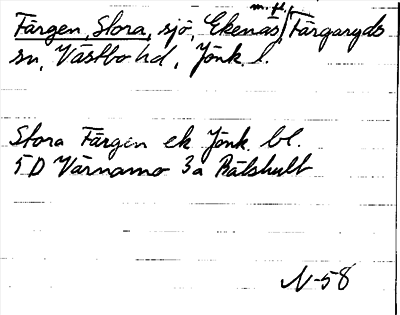 Färgen, Stora, sjö, Ekenäs m. fl., Färgaryds
sn, Västbo hd, Jönk. l.
Stora Färgen ek Jönk. bl.
5 D Värnamo 3a Båtshult
N-58